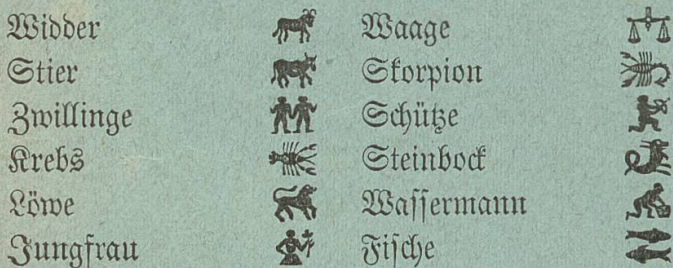 Widder
Stier
Zwillinge
Krebs
Löwe
Jungfrau
Waage
Skorpion
Schütze
Steinbock
Wassermann
Fische